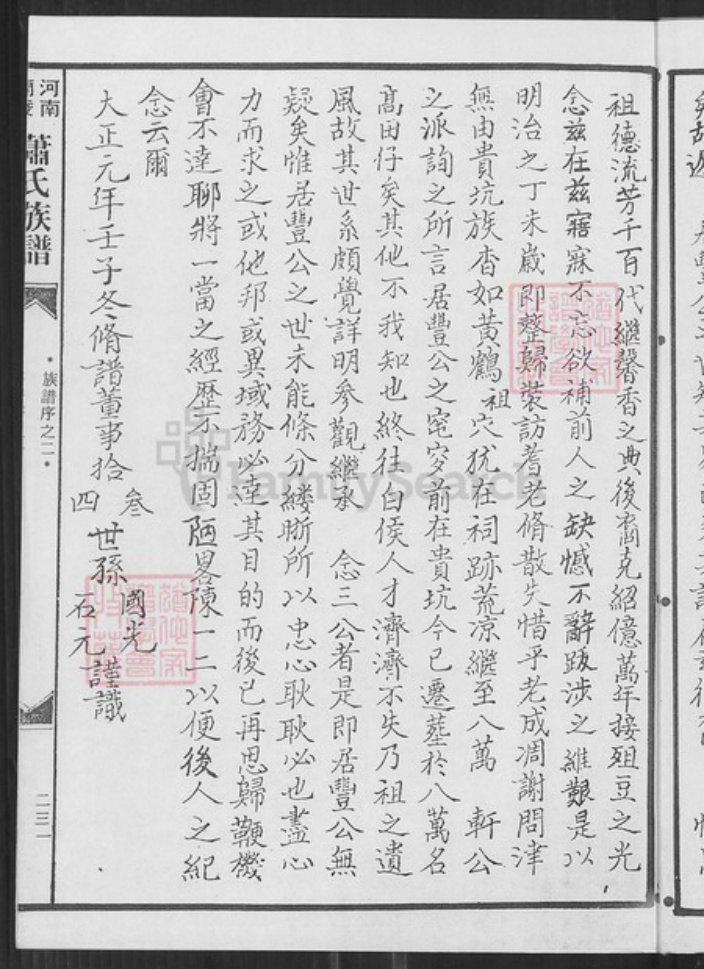 祖德流芳千百代繼馨香之典後裔克紹億萬年接俎豆之光
念茲在茲寤寐不忘欲補前人之缺憾不辭跋涉之維艱是以
明治之丁未歲即整歸裝訪耆老脩散失惜乎老成凋謝問津
無由貴坑族杳如黃鶴祖穴犹在祠跡荒凉繼至八萬　軒公
之派詢之所言居豐公之窀穸前在貴坑今已遷塟於八萬名
高田仔矣其他不我知也終往白侯人才濟濟不失乃祖之遺
風故其世系頗覺詳明參觀繼承　念三公者是即居豐公無
疑矣惟居豐公之世未能條分縷晰所以忠心耿耿必也盡心
力而求之或他邦或異域務必達其目的而後已再思歸鞭機
會不達聊將一當之經歷不揣固陋畧陳一二以便後人之紀
念云爾
大正元年壬子冬脩譜董事拾
叁
四
世孫
國光
石元
謹識
河南
蕭氏族譜
•族譜序之二•
二三一
FamilySearch